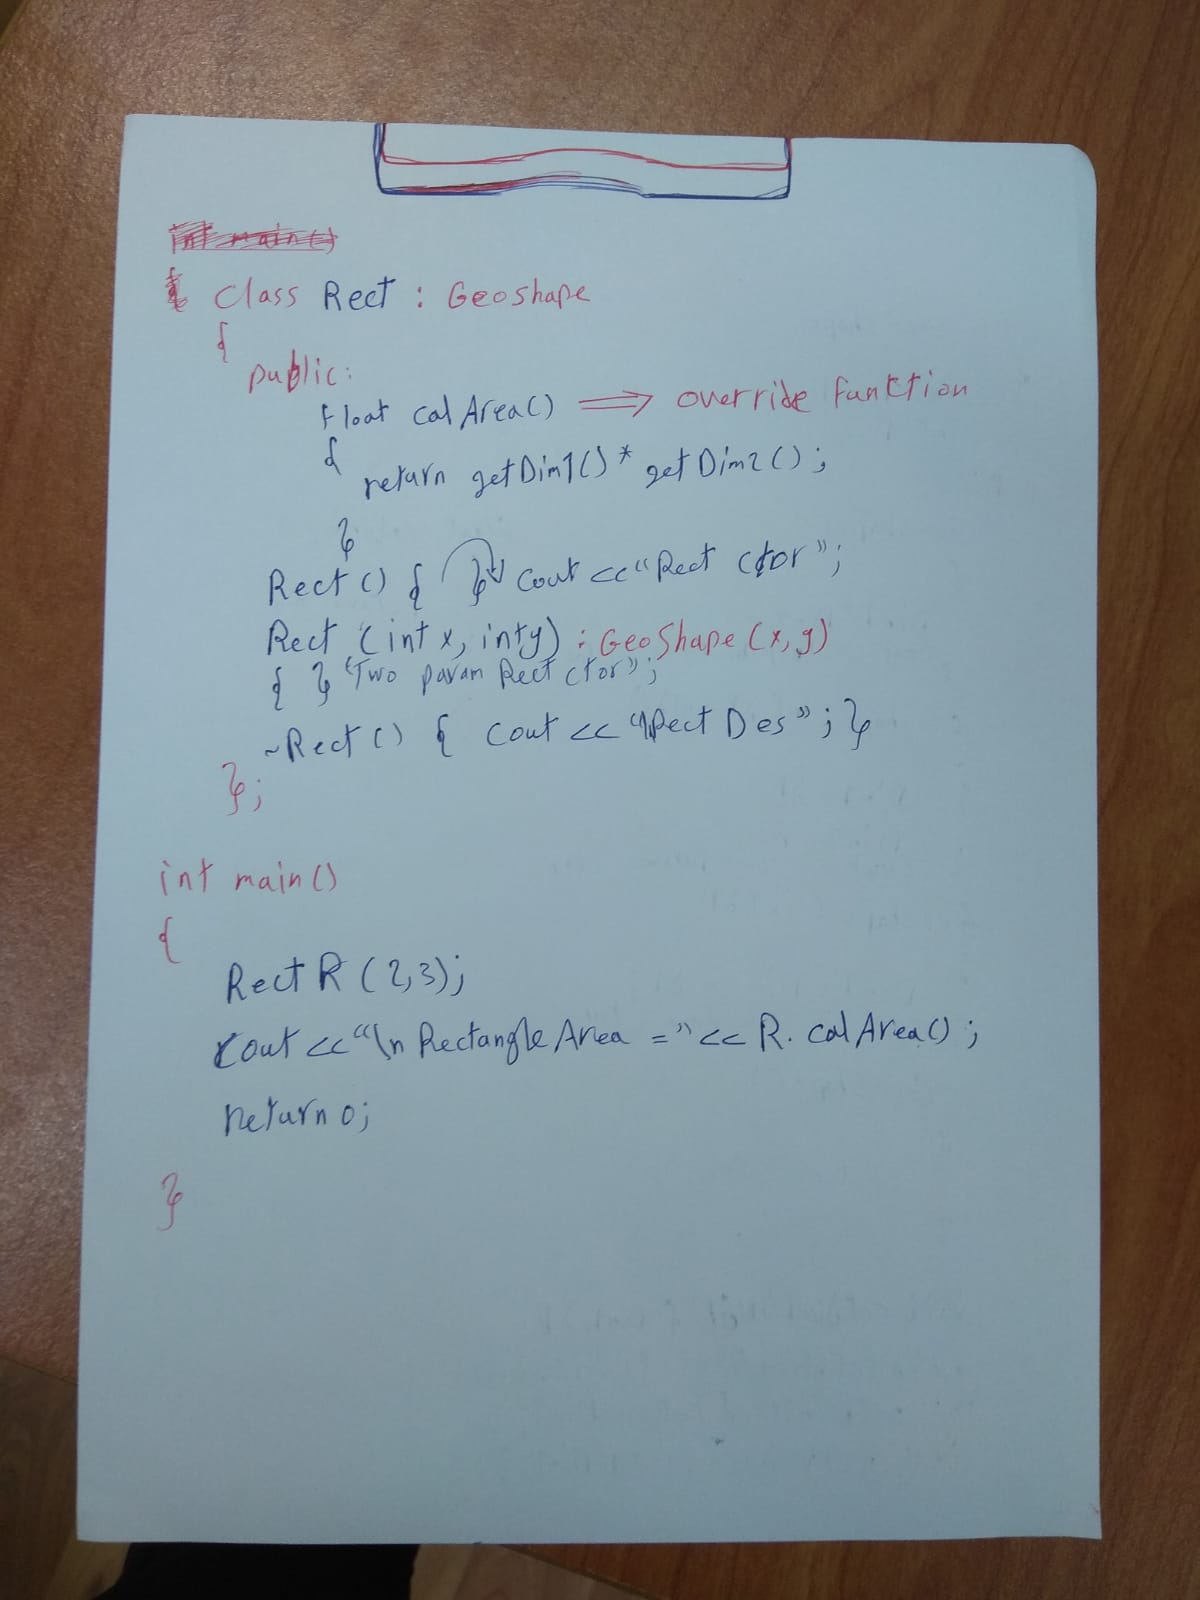 int main()
{ class Rect : Geoshape
{
public:
float calArea() => override funktion
{
return getDim1() * getDim2();
}
Rect () { } cout << "Rect ctor";
Rect (int x, int y) : GeoShape (x, y)
{ } "Two param Rect ctor";
~Rect () { cout << "\Rect Des"; }
};
int main()
{
Rect R (2,3);
cout << "\n Rectangle Area =" << R. calArea();
return 0;
}